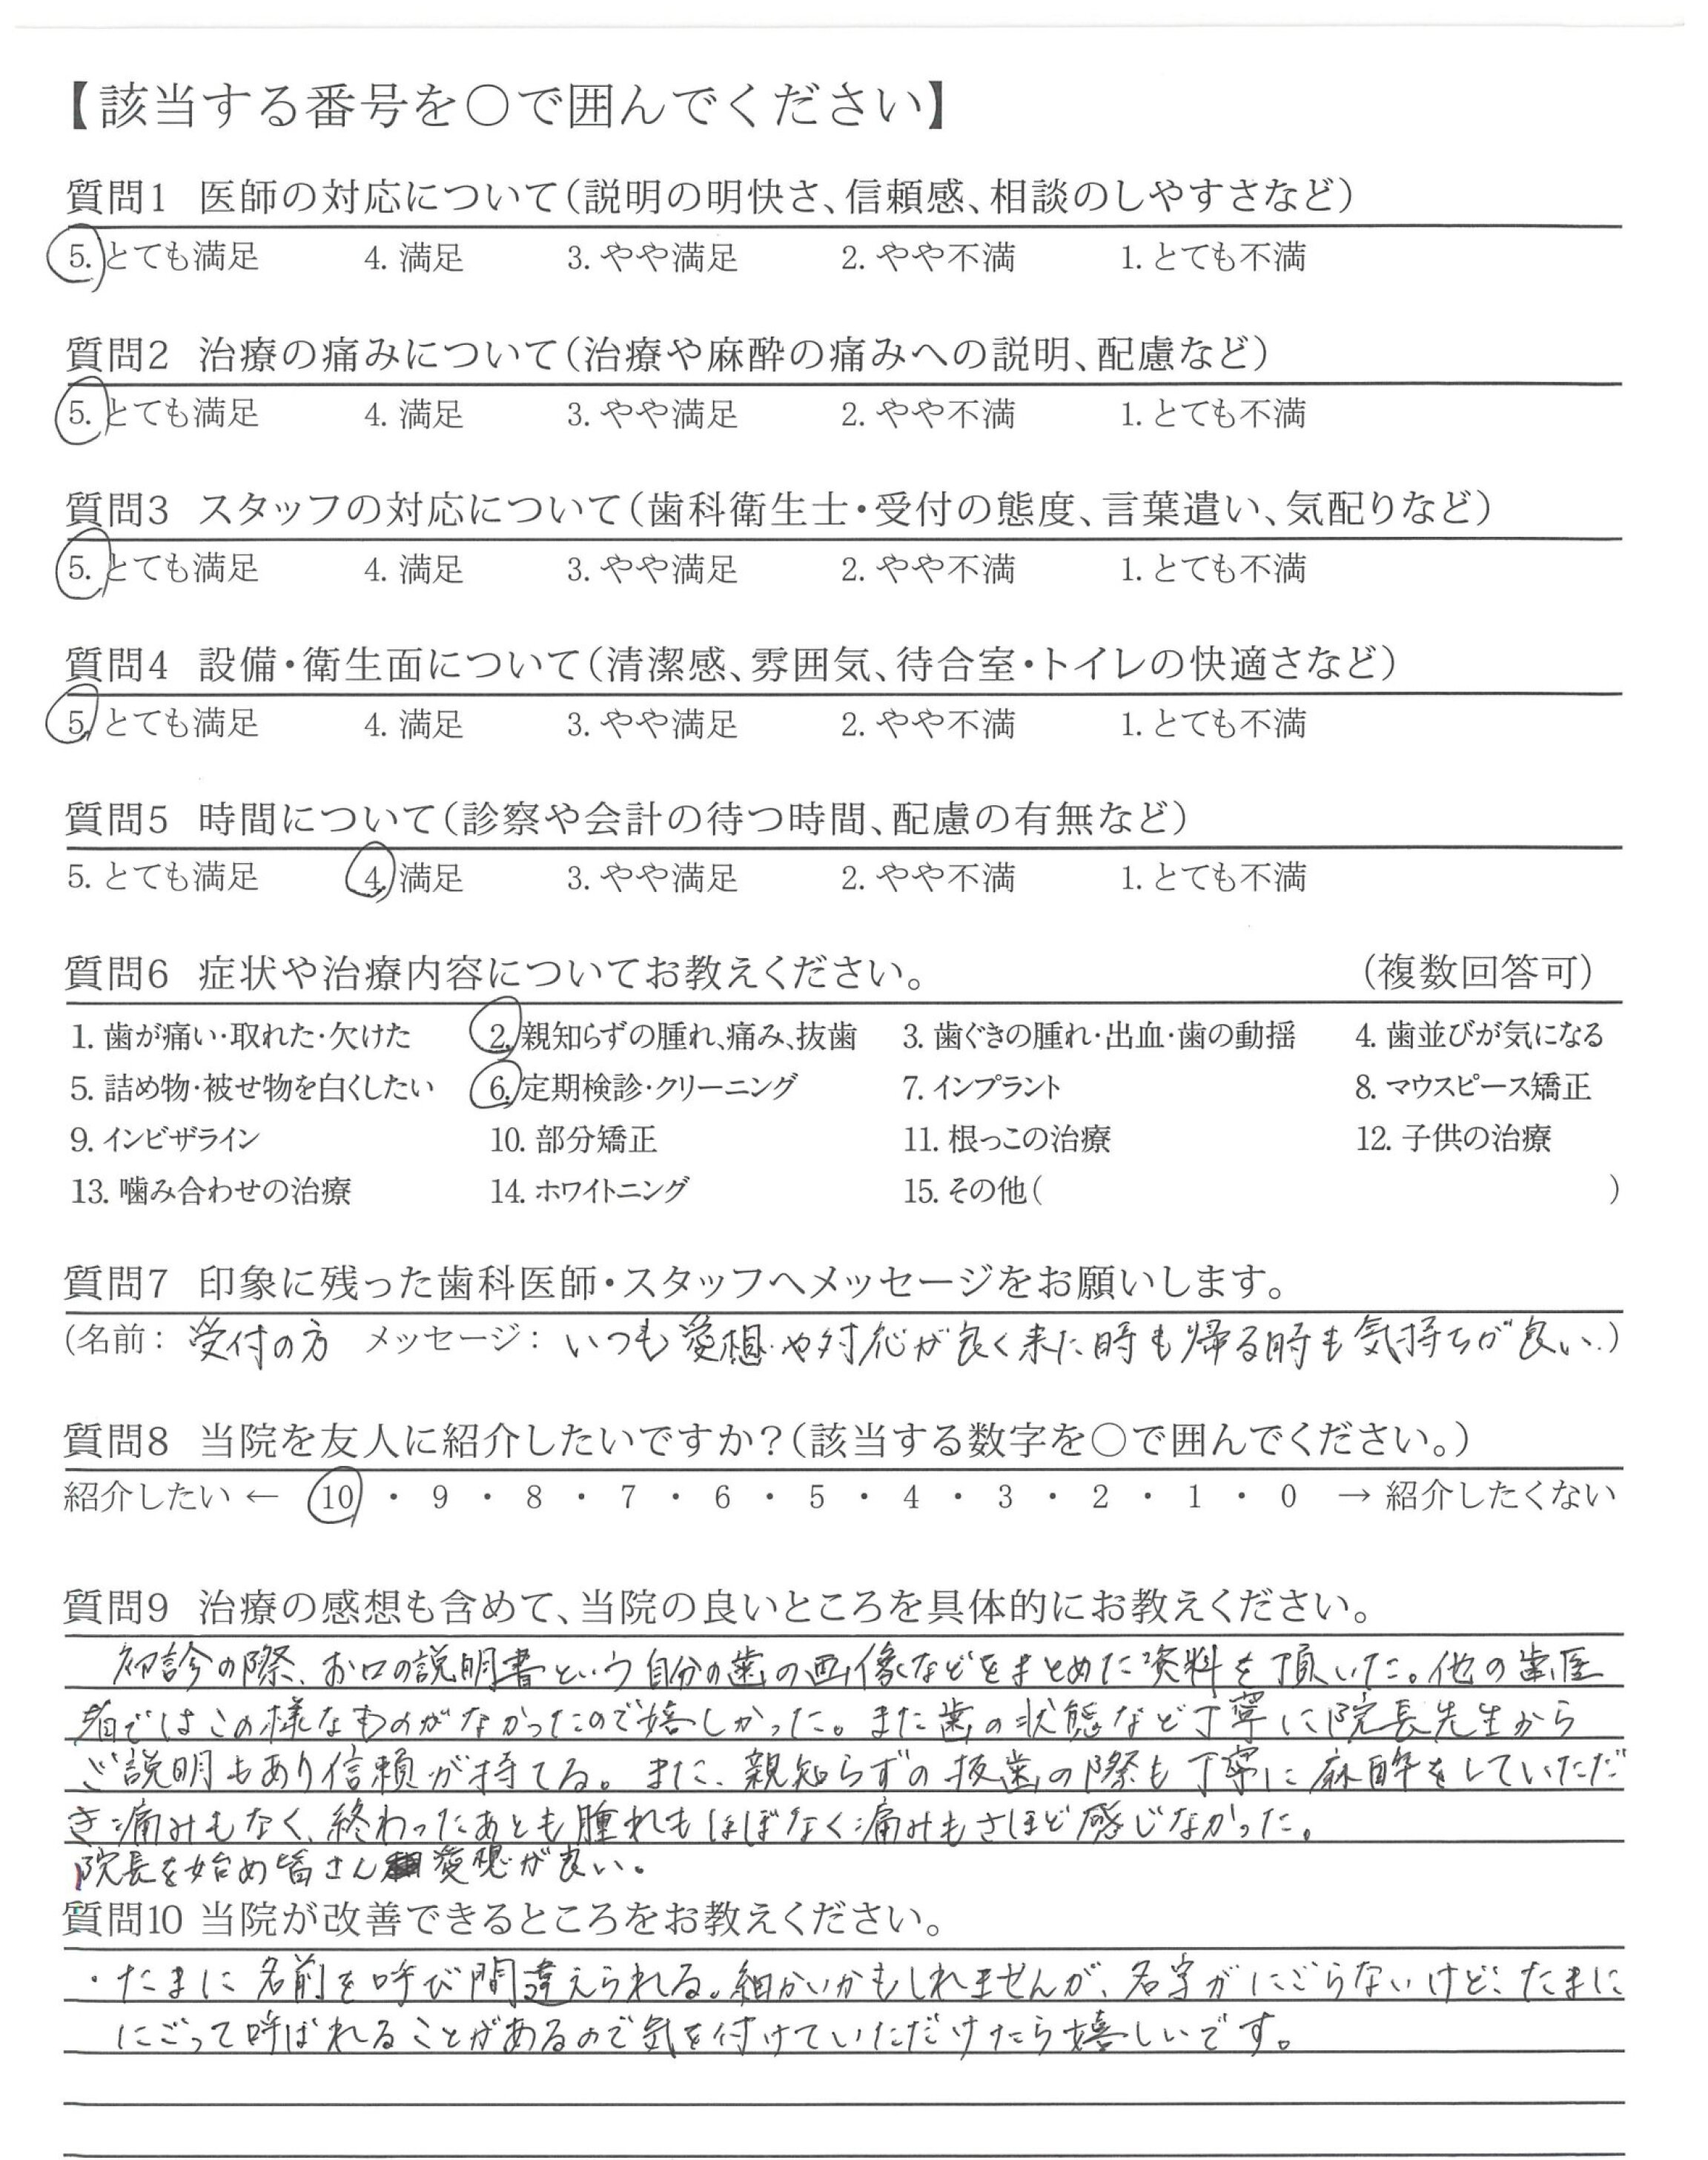 【該当する番号を○で囲んでください】
質問1 医師の対応について(説明の明快さ、信頼感、相談のしやすさなど)
5. とても満足 4. 満足 3. やや満足 2. やや不満 1. とても不満
質問2 治療の痛みについて(治療や麻酔の痛みへの説明、配慮など)
5. とても満足 4. 満足 3. やや満足 2. やや不満 1. とても不満
質問3 スタッフの対応について(歯科衛生士・受付の態度、言葉遣い、気配りなど)
5. とても満足 4. 満足 3. やや満足 2. やや不満 1. とても不満
質問4 設備・衛生面について(清潔感、雰囲気、待合室・トイレの快適さなど)
5. とても満足 4. 満足 3. やや満足 2. やや不満 1. とても不満
質問5 時間について(診察や会計の待つ時間、配慮の有無など)
5. とても満足 4. 満足 3. やや満足 2. やや不満 1. とても不満
質問6 症状や治療内容についてお教えください。 (複数回答可)
1. 歯が痛い・取れた・欠けた 2. 親知らずの腫れ、痛み、抜歯 3. 歯ぐきの腫れ・出血・歯の動揺 4. 歯並びが気になる
5. 詰め物・被せ物を白くしたい 6. 定期検診・クリーニング 7. インプラント 8. マウスピース矯正
9. インビザライン 10. 部分矯正 11. 根っこの治療 12. 子供の治療
13. 噛み合わせの治療 14. ホワイトニング 15. その他( )
質問7 印象に残った歯科医師・スタッフへメッセージをお願いします。
(名前: 受付の方 メッセージ: いつも愛想や対応が良く来た時も帰る時も気持ちが良い。)
質問8 当院を友人に紹介したいですか?(該当する数字を○で囲んでください。)
紹介したい ← 10 ・ 9 ・ 8 ・ 7 ・ 6 ・ 5 ・ 4 ・ 3 ・ 2 ・ 1 ・ 0 → 紹介したくない
質問9 治療の感想も含めて、当院の良いところを具体的にお教えください。
初診の際、お口の説明書という自分の歯の画像などをまとめた資料を頂いた。他の歯医
者ではこの様なものがなかったので嬉しかった。また歯の状態など丁寧に院長先生から
ご説明もあり信頼が持てる。また、親知らずの抜歯の際も丁寧に麻酔をしていただ
き痛みもなく、終わったあとも腫れもほぼなく痛みもさほど感じなかった。
院長を始め皆さん愛想が良い。
質問10 当院が改善できるところをお教えください。
・たまに名前を呼び間違えられる。細かいかもしれませんが、名字がにごらないけど、たまに
にごって呼ばれることがあるので気を付けていただけたら嬉しいです。